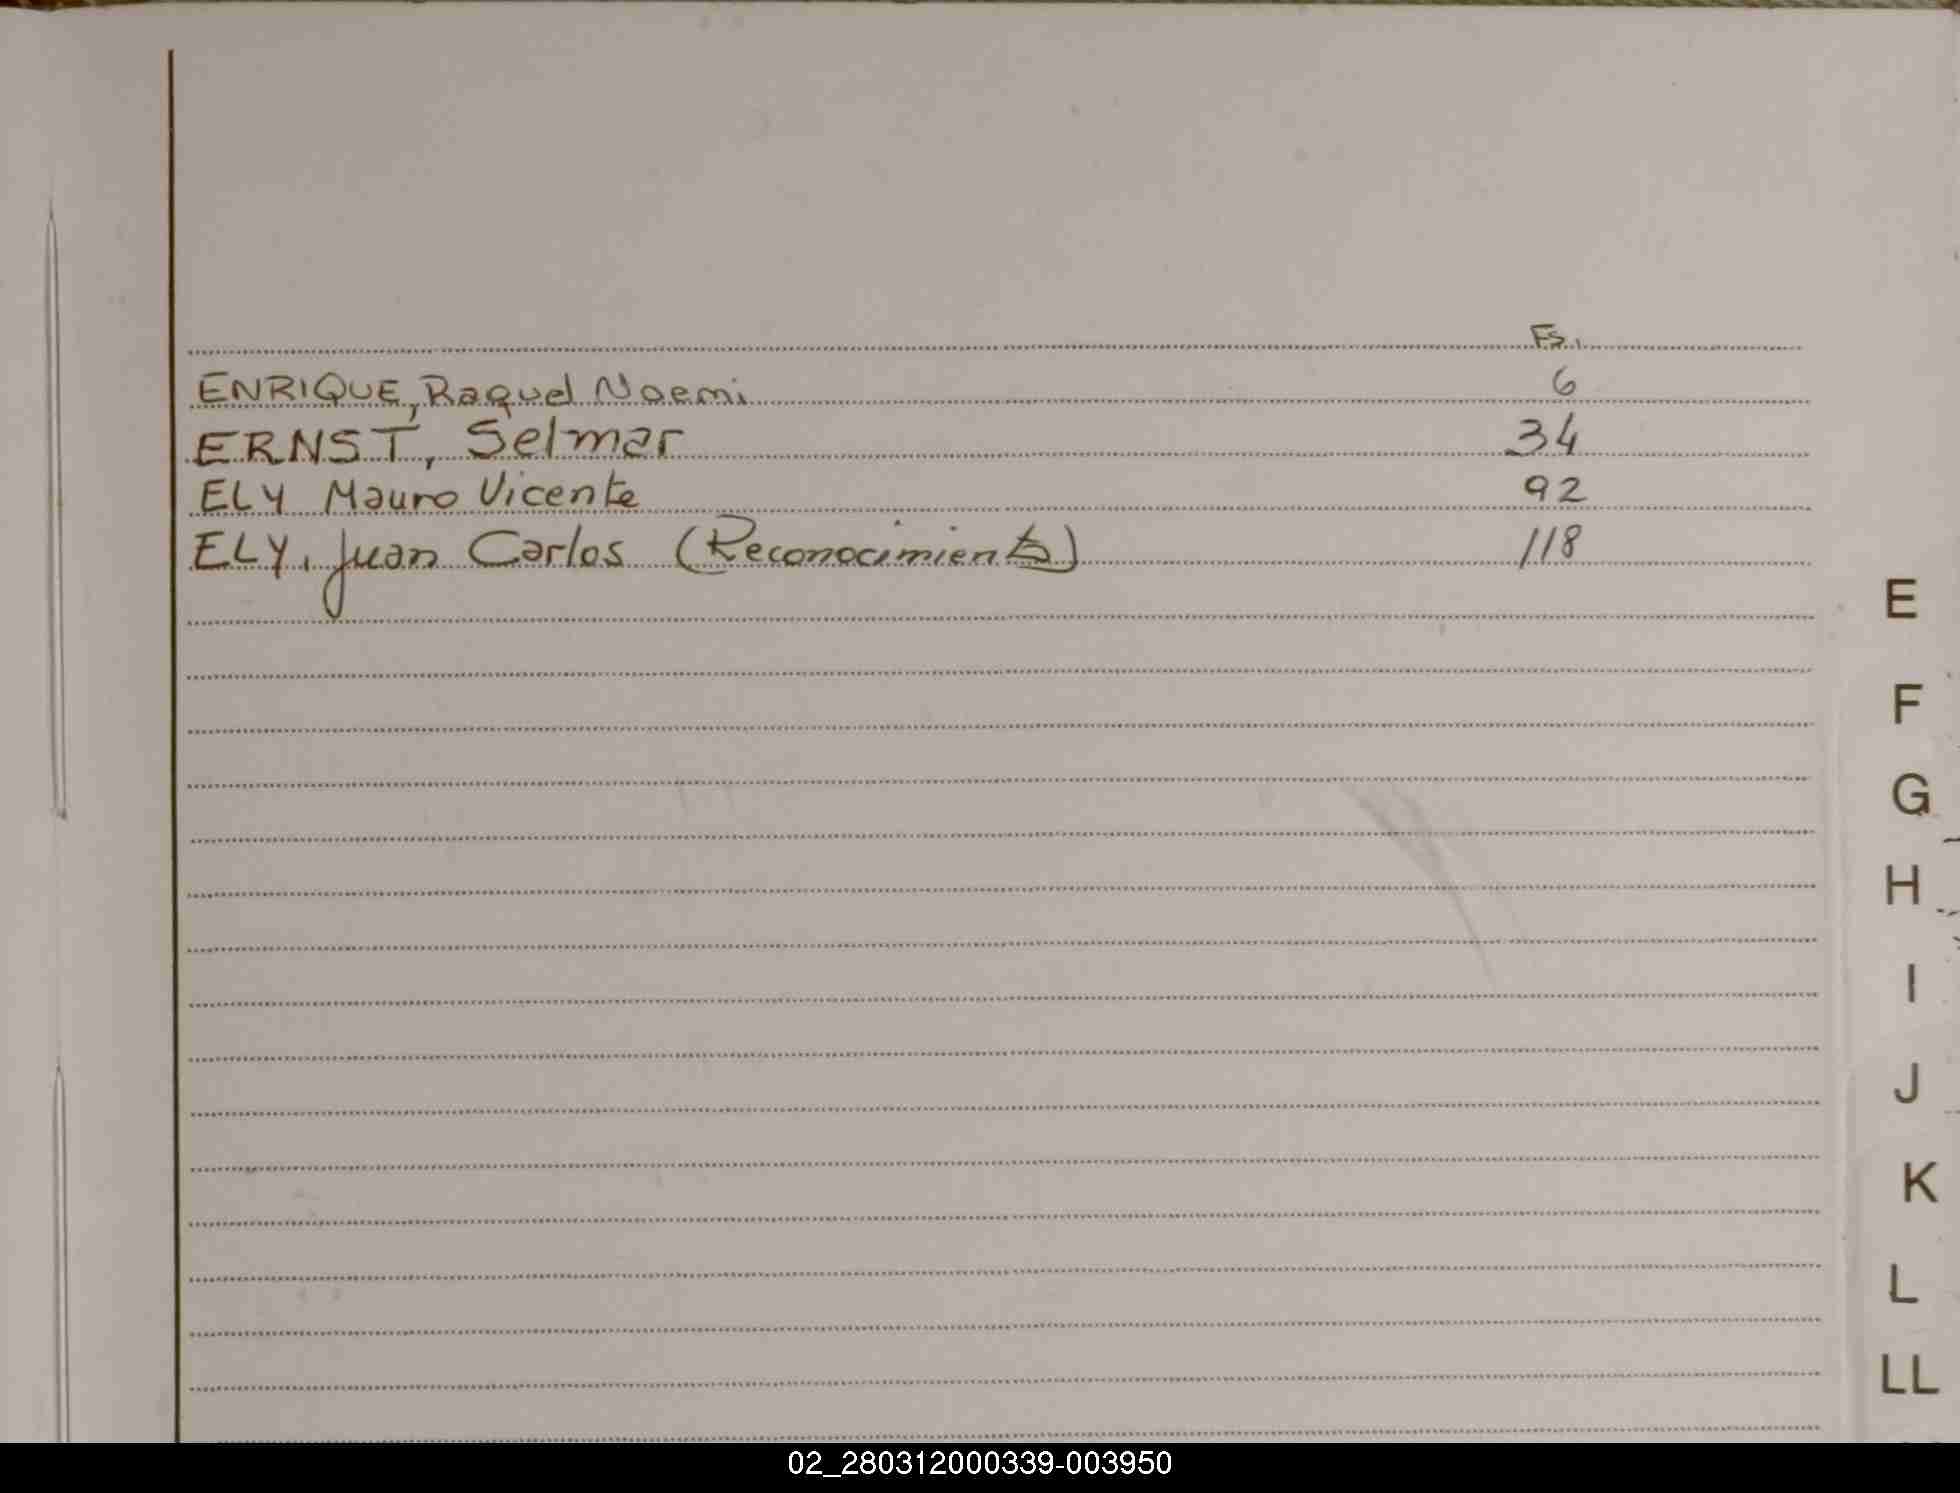 Fs.
ENRIQUE, Raquel Noemi 6
ERNST, Selmar 34
ELY Mauro Vicente 92
ELY, Juan Carlos (Reconocimiento) 118
E
F
G
H
I
J
K
L
LL
02_280312000339-003950